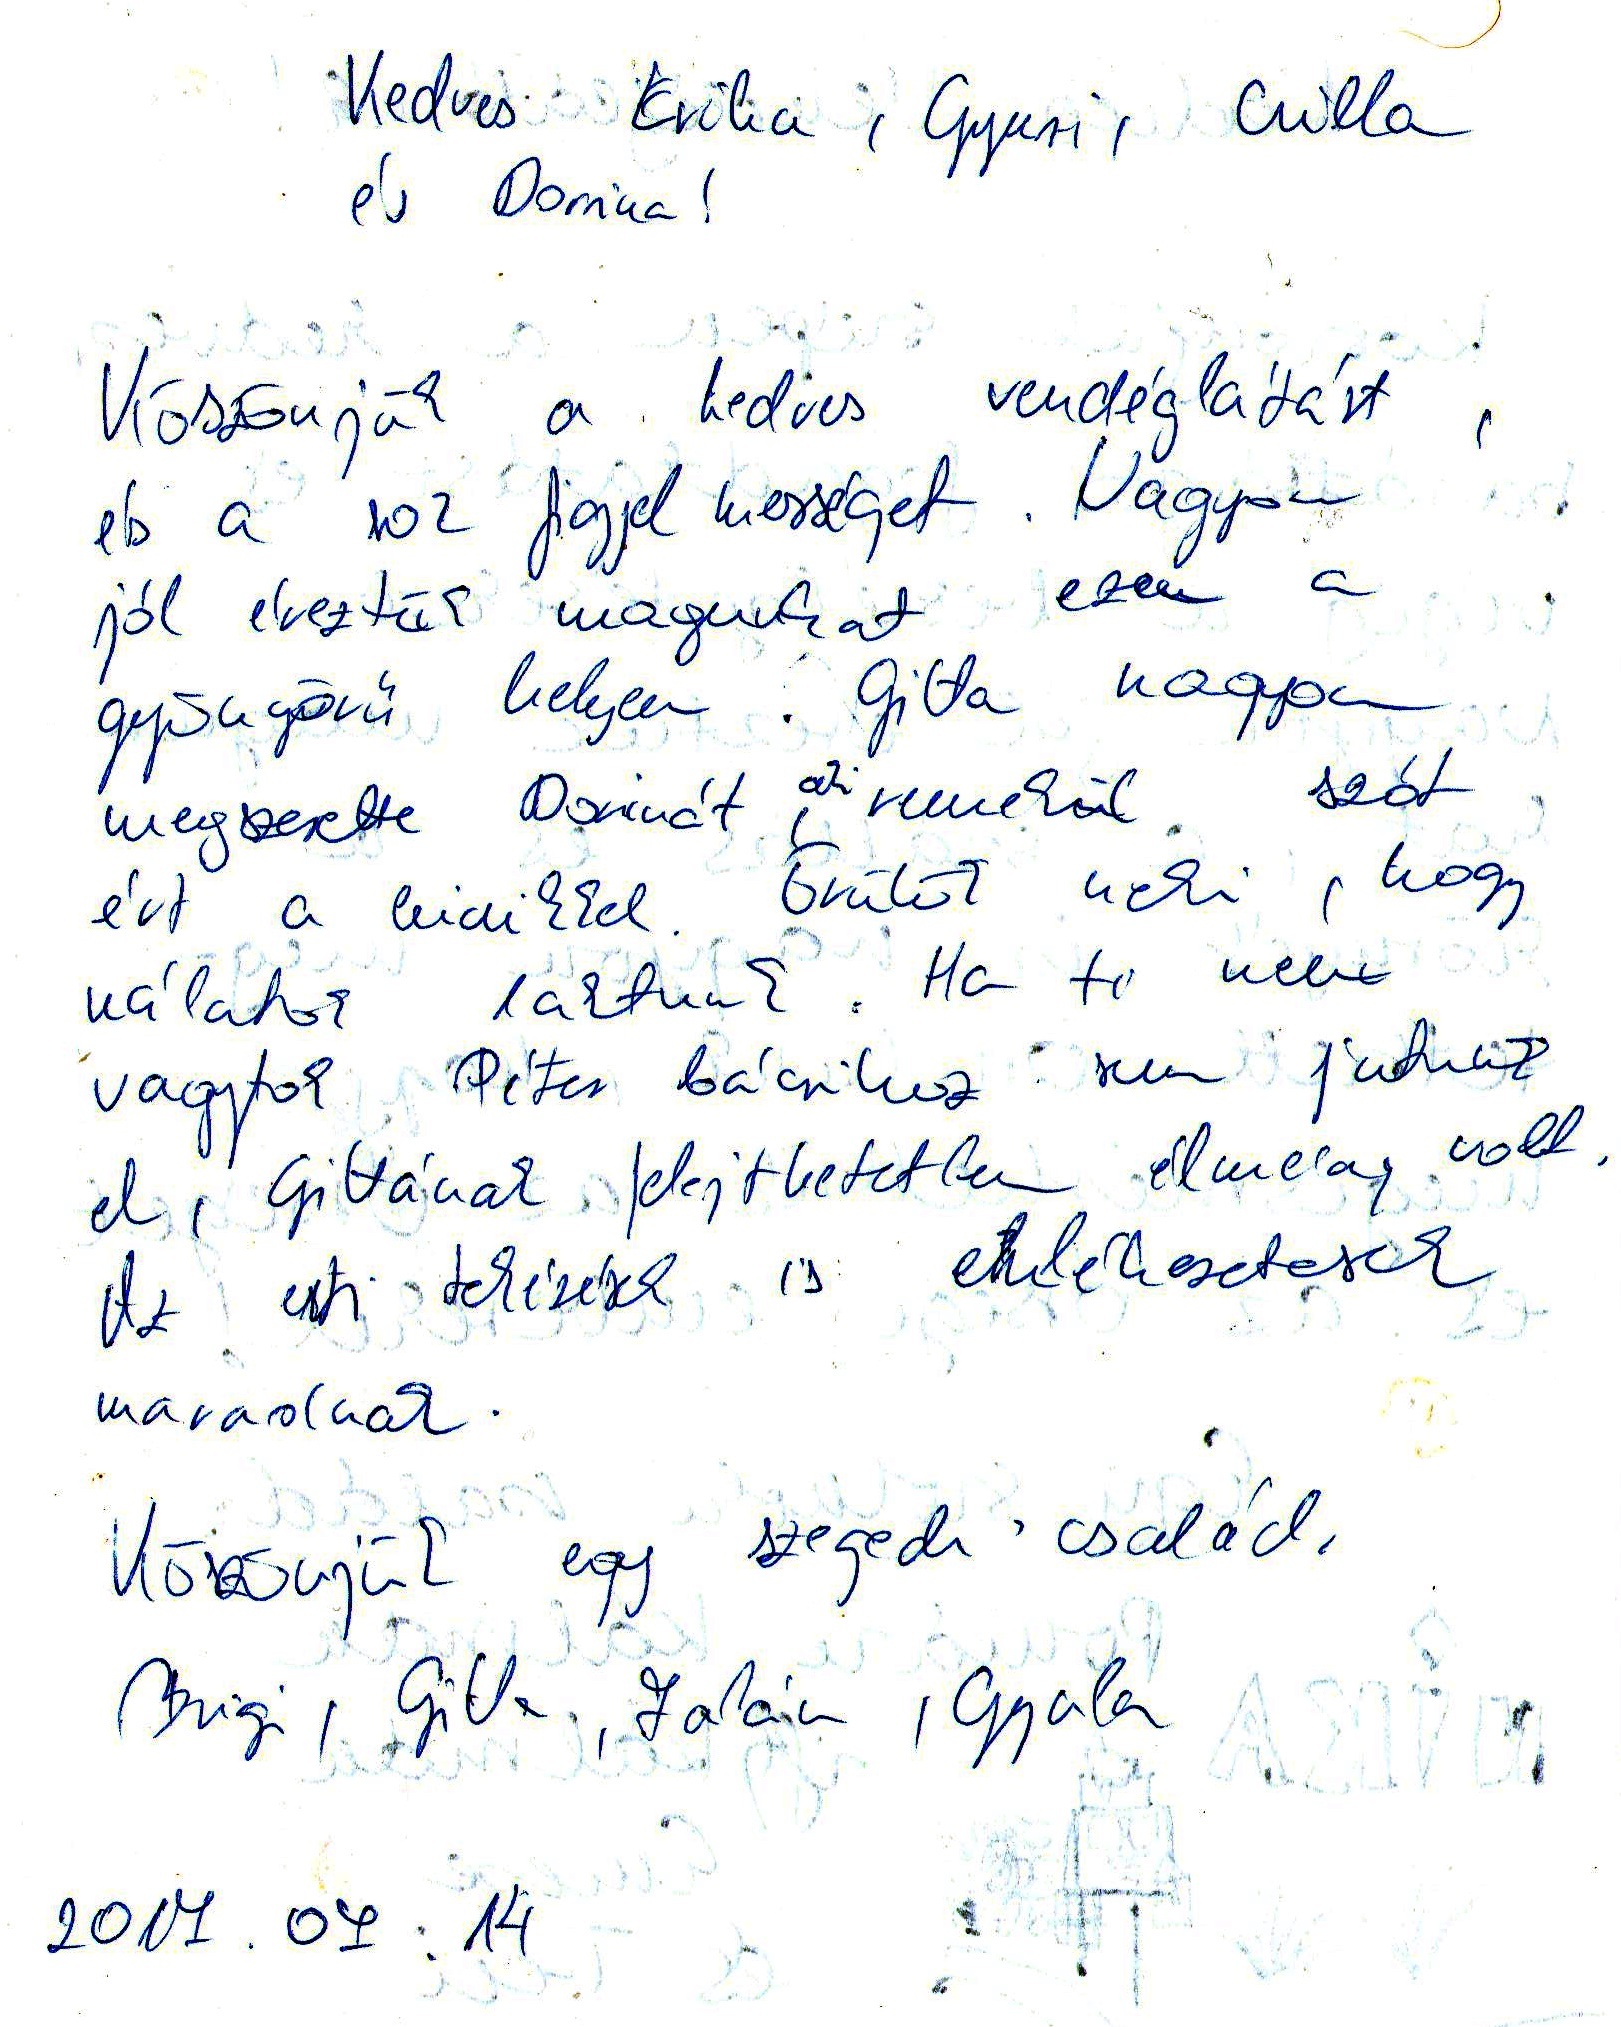 Kedves Erika, Gyuri, Csilla
és Dorina!
Köszönjük a kedves vendéglátást,
és a sok figyelmességet. Nagyon
jól éreztük magunkat ezen a
gyönyörű helyen. Gitta nagyon
megszerette Dorinát, aki remekül szót
ért a kicsikkel. Örülök neki, hogy
nálatok laktunk. Ha ti nem
vagytok Péter bácsihoz sem jutunk
el, Gittának felejthetetlen élmény volt.
Az esti tekézések is emlékezetesek
maradnak.
Köszönjük egy szegedi család.
Brigi, Gitta, Zalán, Gyula
2017.07.14